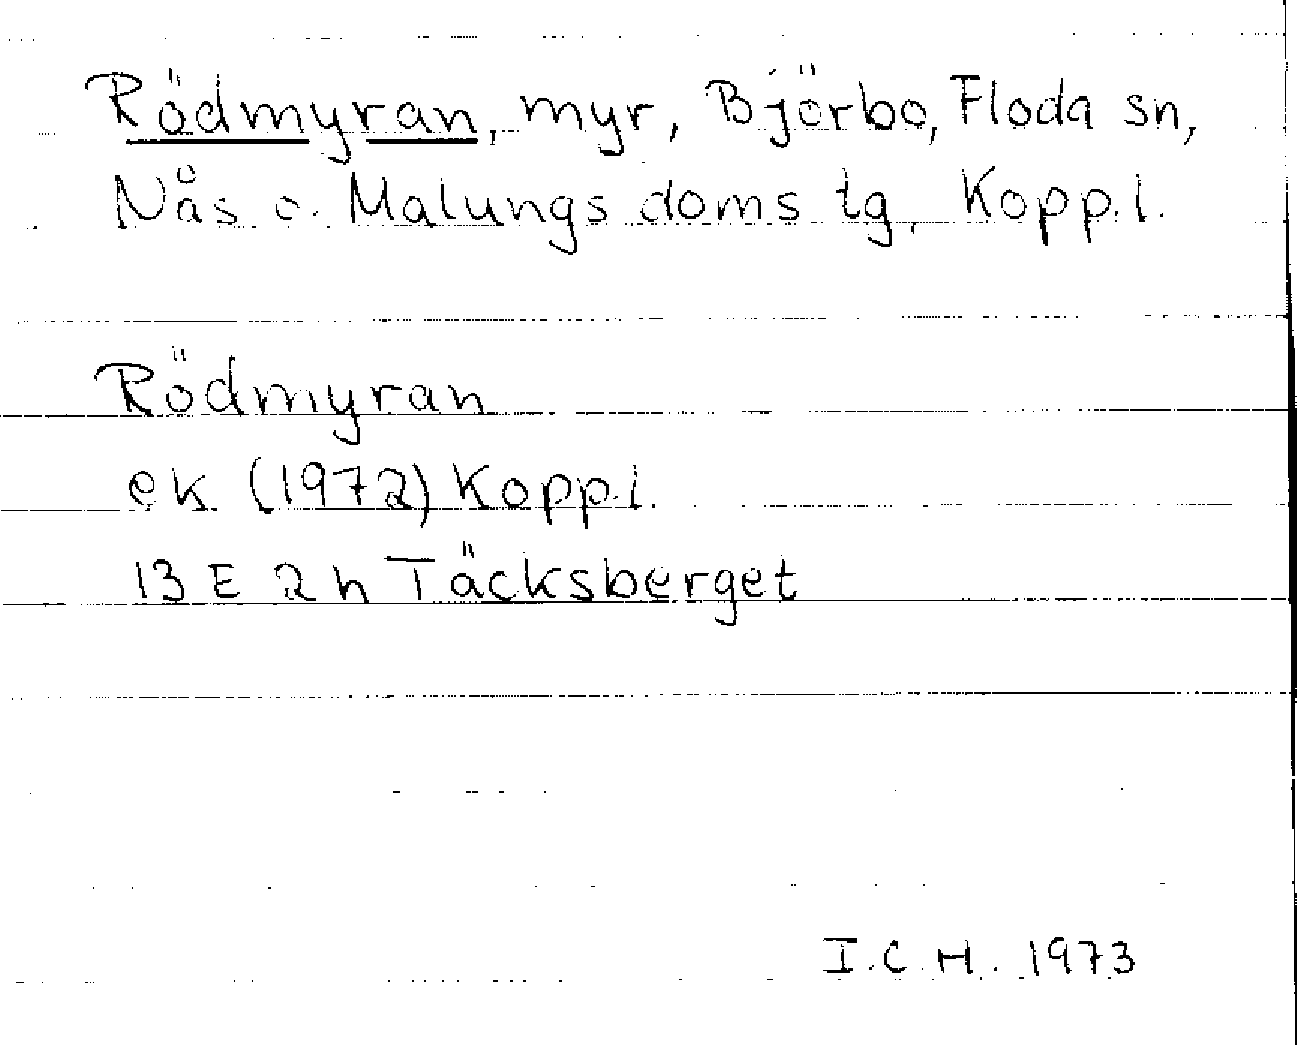 Rödmyran, myr, Björbo, Floda sn,
Nås o. Malungs doms tg, Kopp.l.
Rödmyran
ek (1972) Kopp.l.
13 E 2 h Täcksberget
I.C.H. 1973